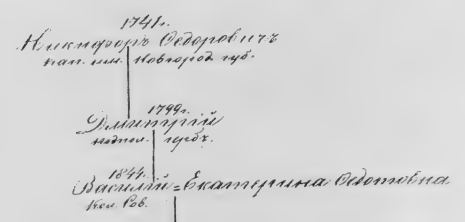 1741г.
Никифоръ Ѳедоровичъ
кап. им. Новгород. губ.
1799г.
Дмитрій
подпол. губ.
1844г.
Василій = Екатерина Ѳедотовна
Кол. Сов.